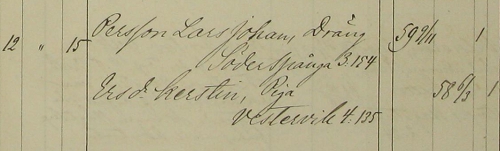 12 " 15 Persson Lars Johan, Dräng 59 9/11 1
Söderspånga 3.154
Ersdr. Kerstin, Piga 58 6/3 1
Vestervik 4.135